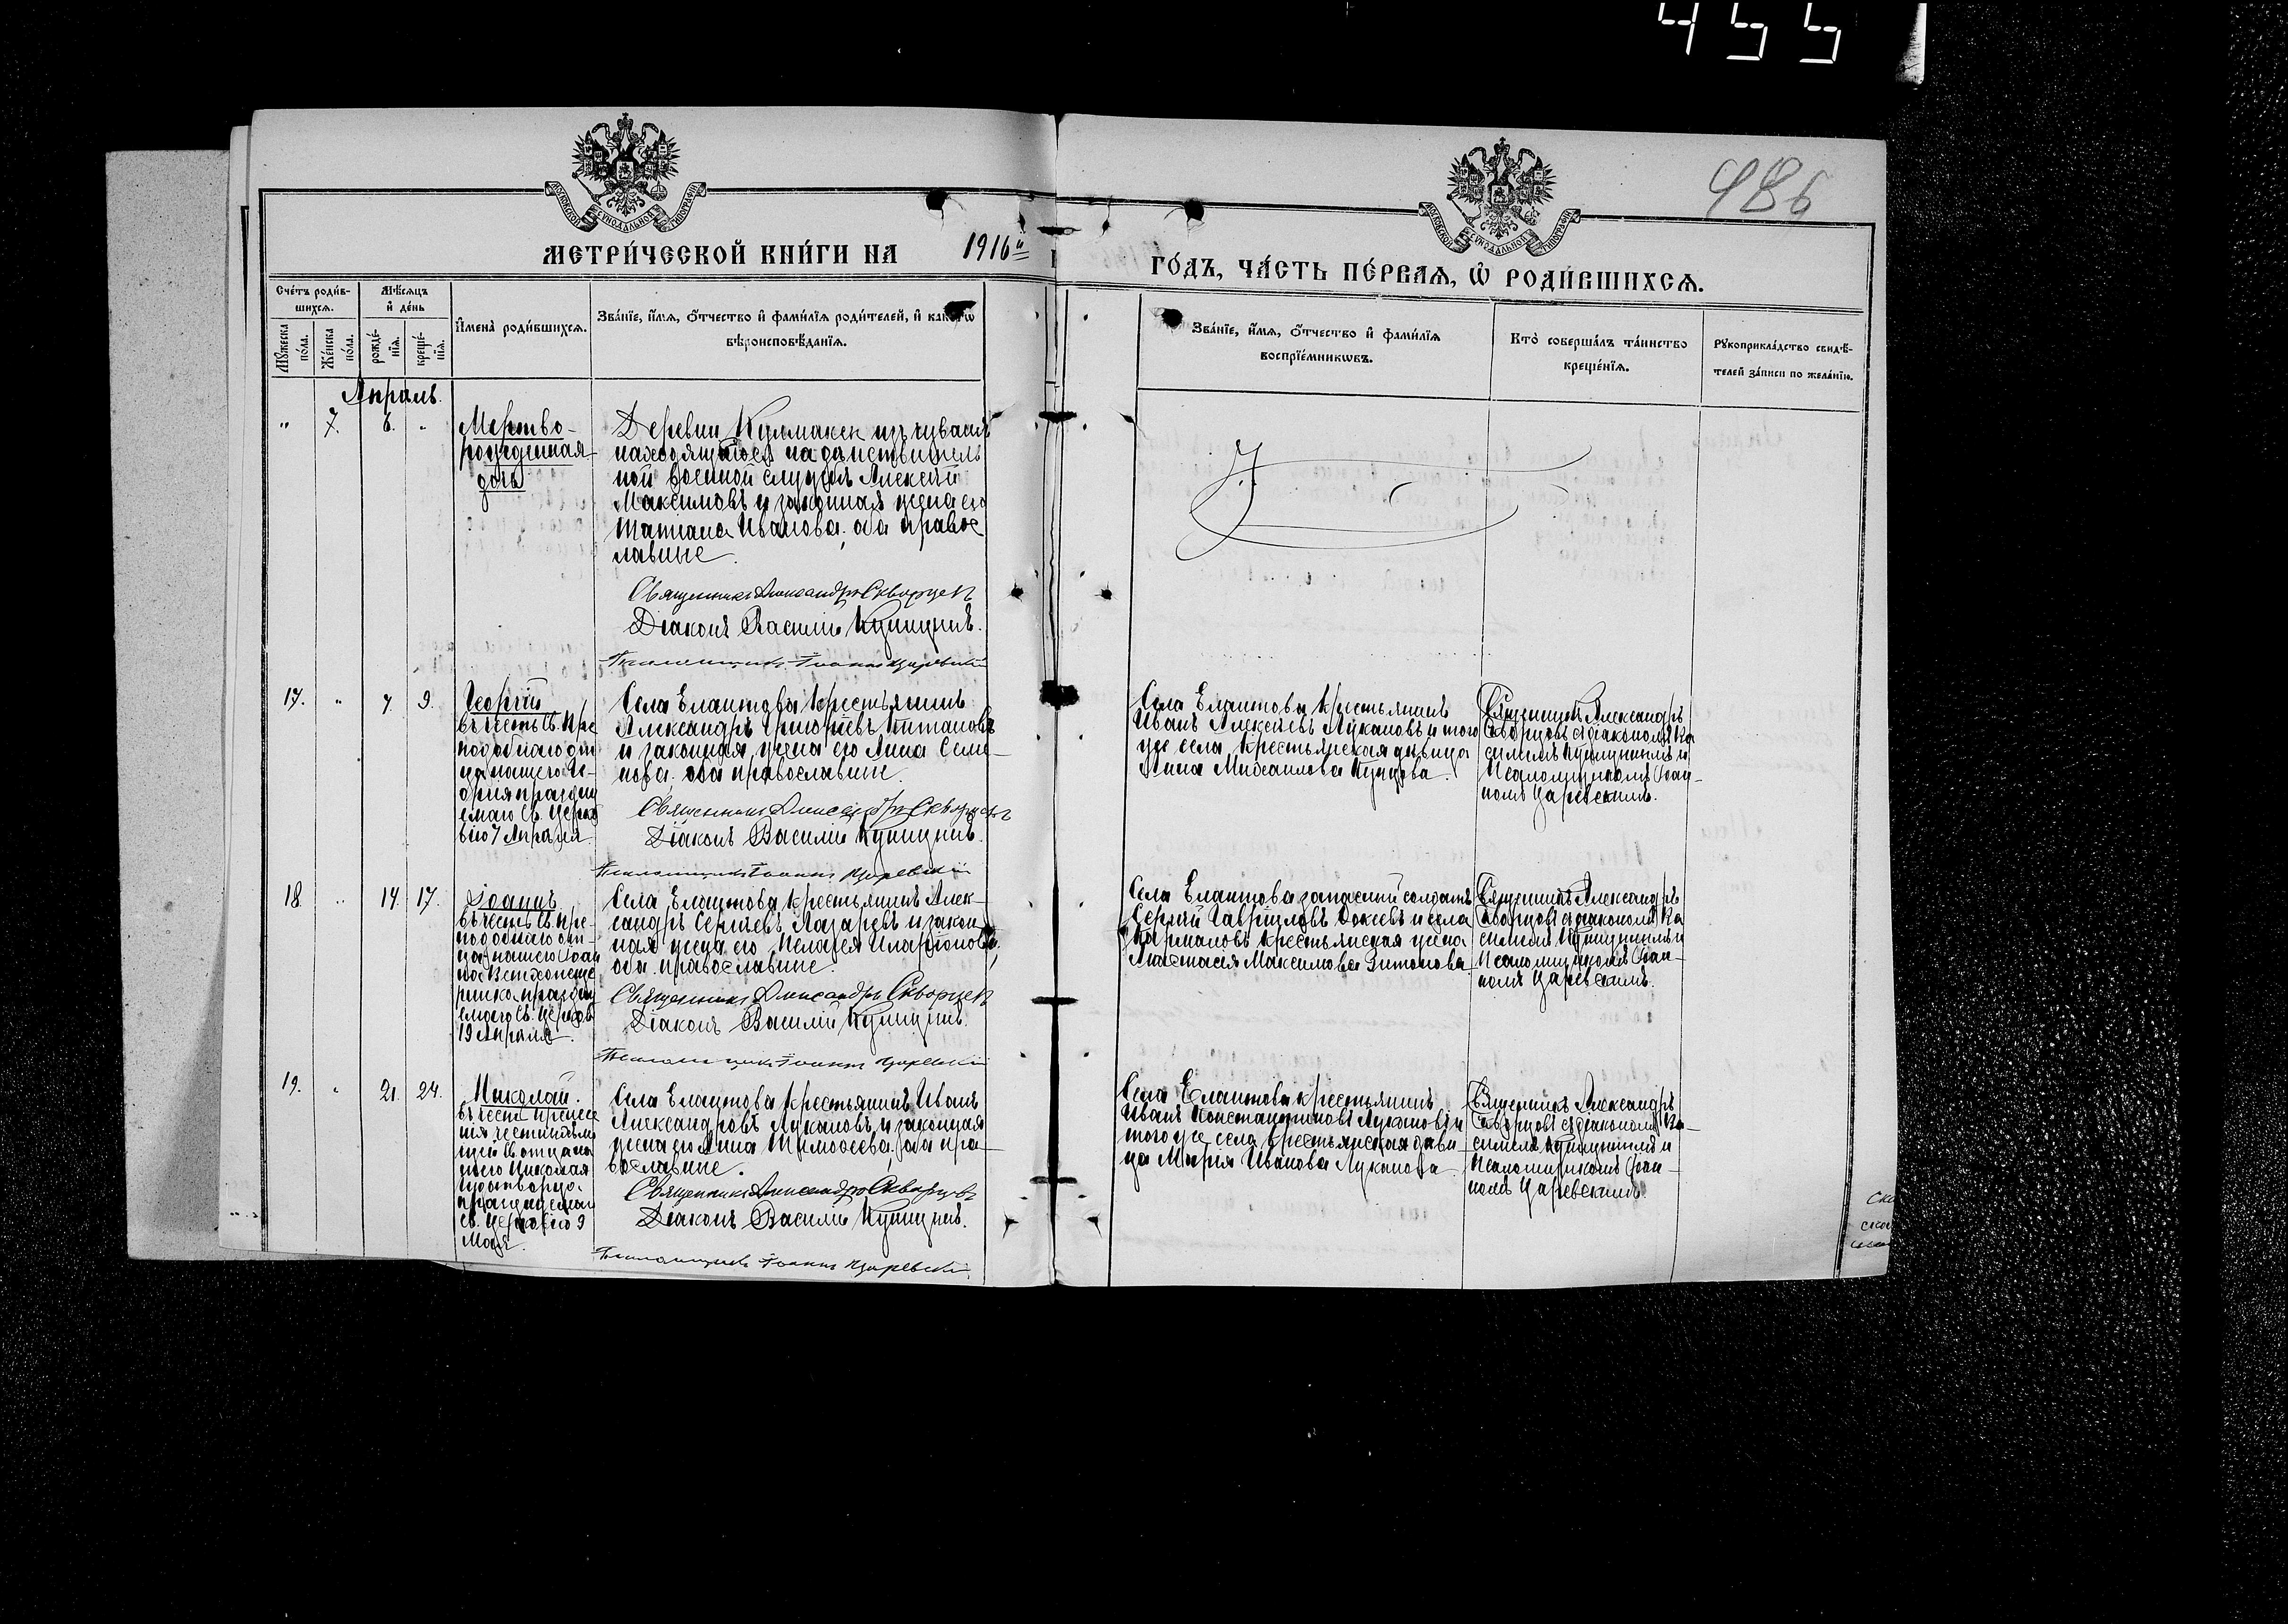 455
486
МОСКОВСКОЙ СѴНОДАЛЬНОЙ ТИПОГРАФІИ
МОСКОВСКОЙ СѴНОДАЛЬНОЙ ТИПОГРАФІИ
МЕТРИ́ЧЕСКОЙ КНИ́ГИ НА 1916й
ГО́ДЪ, ЧА́СТЬ ПЕ́РВАѦ, Ѽ РОДИ́ВШИХСѦ.
Сче́тъ роди́в-
шихсѧ.
Мꙋ́жеска по́ла.
Же́нска по́ла.
Мѣ́сѧцъ
и҆ де́нь
рожде́-нїѧ.
креще́-нїѧ.
И҆мена̀ роди́вшихсѧ.
Зва́нїе, и҆́мѧ, ѻ҆́тчество и҆ фами́лїѧ роди́телей, и҆ како́гѡ
вѣроисповѣ́данїѧ.
Зва́нїе, и҆́мѧ, ѻ҆́тчество и҆ фами́лїѧ
воспрїе́мникѡвъ.
Кто̀ соверша́лъ та́инство
креще́нїѧ.
Рꙋкоприкла́дство свидѣ́-
телей за́писи по жела́нїю.
Апрѣль
" 7. 6. "
Мертво-
рожденная
дочь
Деревни Кулмаксы изъ чувашъ
находящагося на дѣйствитель
ной военной службѣ Алексѣй
Максимовъ и законная жена его
Татіана Иванова; оба правос
лавные.
Священникъ Александръ Скворцовъ
Діаконъ Василій Купцынъ.
Псаломщикъ Іоаннъ Царевскій
17. " 7 9.
Георгій
въ честь Св. Пре
подобнаго от
ца нашего Ге-
оргія празднуе
емаго Св. Церко
вію 7 Апрѣля.
Села Елаштова Крестьянинъ
Александръ Григорьевъ
и законная жена его Анна Семе-
нова. оба православные.
Священникъ Александръ Скворцовъ
Діаконъ Василій Купцынъ.
Псаломщикъ Іоаннъ Царевскій
Села Елаштова Крестьянинъ
Иванъ Алексѣевъ Лукановъ и того
же села крестьянская дѣвица
Анна Михаилова
Священникъ Александръ
Скворцовъ съ діакономъ Ва
силіемъ Купцынымъ и
Псаломщикомъ Іоан-
номъ Царевскимъ.
18 " 14. 17.
Іоаннъ
въ честь Св. Пре-
подобнаго от-
ца нашего Іоан
на Ветхопеще
рника праздну
емаго Св. Церков
19 Апрѣля.
Села Елаштова Крестьянинъ Алек-
сандръ Сергѣевъ Лазаревъ и закон
ная жена его Пелагея Иларіонова,
оба православные.
Священникъ Александръ Скворцовъ
Діаконъ Василій Купцынъ.
Псаломщикъ Іоаннъ Царевскій
Села Елаштова запасный солдатъ
Сергѣй Гавриловъ и села
крестьянская жена
Анастасія Максимова
Священникъ Александръ
Скворцовъ съ діакономъ Ва
силіемъ Купцынымъ и
Псаломщикомъ Іоан-
номъ Царевскимъ.
19. " 21. 24.
Николай.
въ честь пренесе
нія честныхъ мо
щей Св. отца на
шего Николая
Чудотворца
празднуемаго
св. Церковію 9
Мая.
Села Елаштова Крестьянинъ Иванъ
Александровъ Лукановъ и законная
жена его Анна Тимоѳеева, оба пра-
вославные.
Священникъ Александръ Скворцовъ
Діаконъ Василій Купцынъ.
Псаломщикъ Іоаннъ Царевскій
Села Елаштова крестьянинъ
Иванъ Константиновъ Лукановъ и
того же села крестьянская дѣви
ца Марія Иванова Луканова
Священникъ Александръ
Скворцовъ съ діакономъ Ва-
силіемъ Купцынымъ и
Псаломщикомъ Іоан-
номъ Царевскимъ